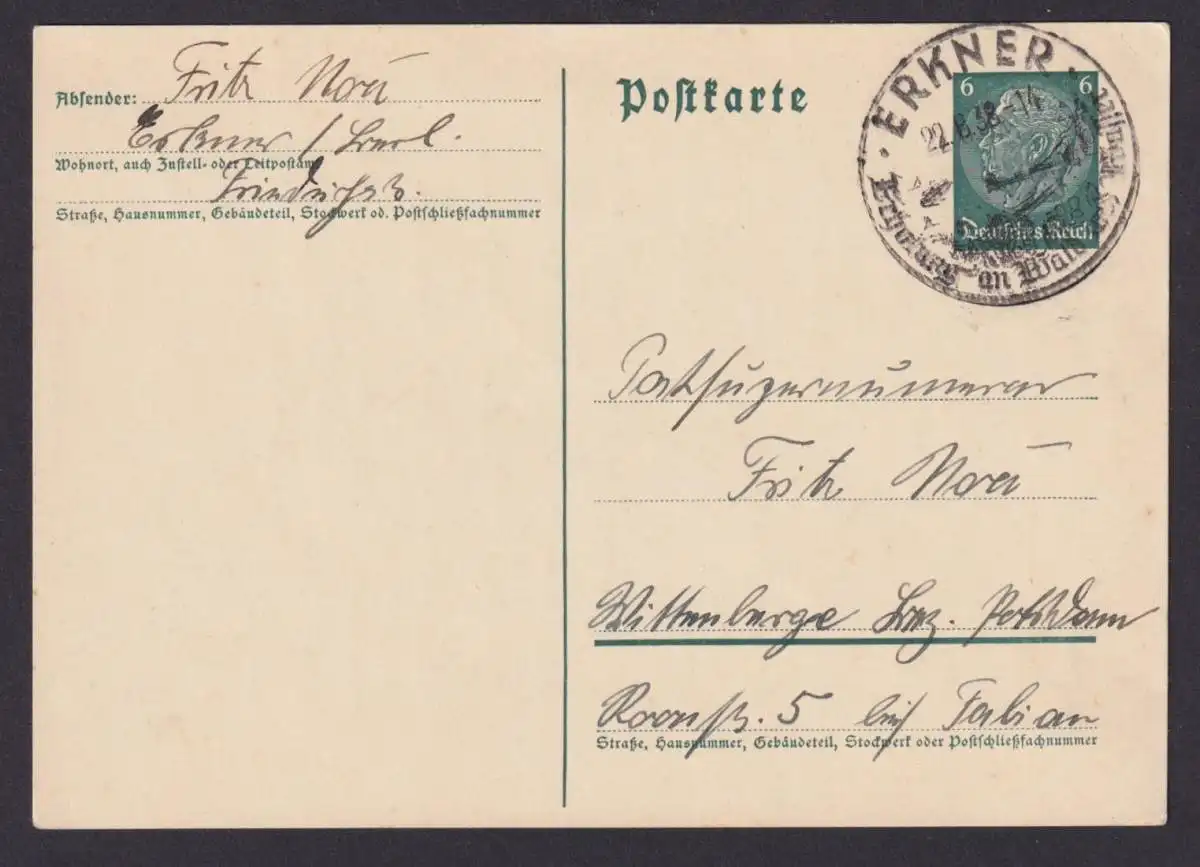 Absender: Fritz Nora
Erkner / Berl.
Wohnort, auch Zustell- oder Leitpostamt
Friedrichstr.
Straße, Hausnummer, Gebäudeteil, Stockwerk od. Postschließfachnummer
Postkarte
6 6
Deutsches Reich
ERKNER
22.8.38.-14
Erholung an Wald
Fritz Nora
Wittenberge Bez. Potsdam
Roonstr. 5 bei Fabian
Straße, Hausnummer, Gebäudeteil, Stockwerk oder Postschließfachnummer